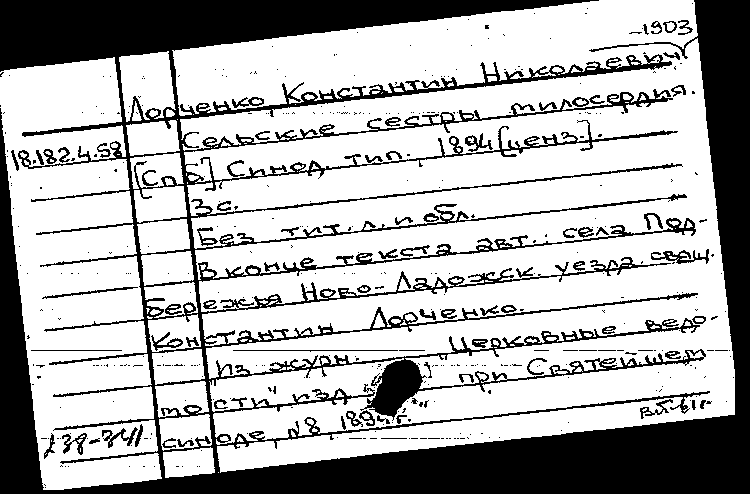 -1903
Лорченко, Константин Николаевич
Сельские сестры милосердия.
18.182.4.58
[Спб], Синод. тип., 1894 [ценз.].
3с.
Без тит. л. и обл.
В конце текста авт.: села Под-
бережья Ново-Ладожск. уезда свящ.
Константин Лорченко.
"Из журн. "Церковные ведо-
мости", изд при Святейшем
синоде, №8, 1894г."
238-341